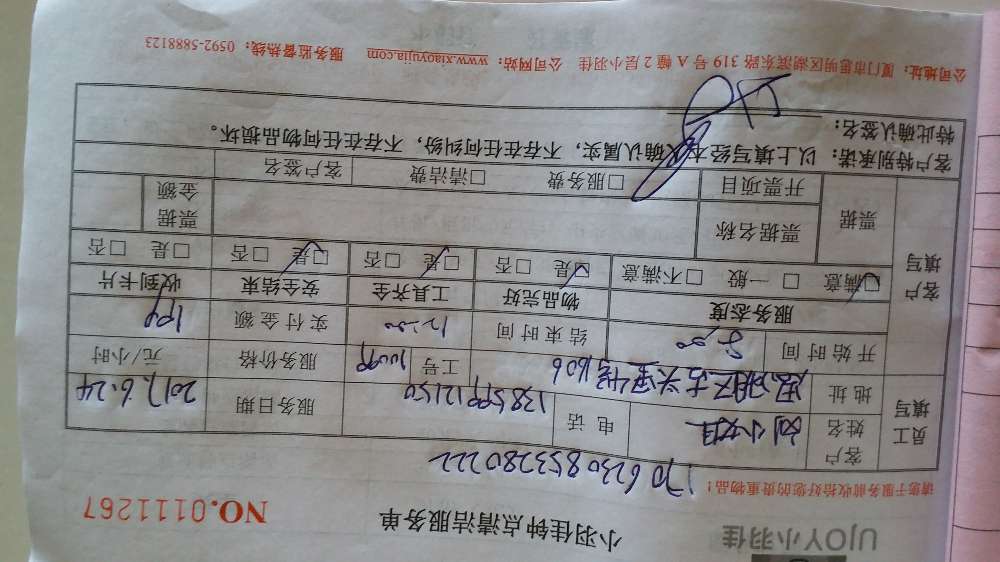 UJOY小羽佳
小羽佳钟点清洁服务单
NO.0111267
请您于服务前收拾好您的贵重物品!
170623085328022 2
员工填写
客户姓名 刘小姐 电话 13859912150 服务日期 2017.6.24
地址 思明区 1606 工号 服务价格 元/小时
开始时间 8:00 结束时间 12:00 实付金额
客户填写
服务态度 物品完好 工具齐全 安全结束 收到卡片
☑满意 □一般 □不满意 ☑是 □否 ☑是 □否 ☑是 □否 □是 □否
票据 票据名称 票据金额
开票项目 □服务费 □清洁费 客户签名
客户特别承诺:以上填写经本人确认属实,不存在任何纠纷,不存在任何物品损坏。
特此确认签名:
公司地址:厦门市思明区湖滨东路 319 号 A 幢 2 层小羽佳 公司网站:www.xiaoyujia.com 服务监督热线:0592-5888123